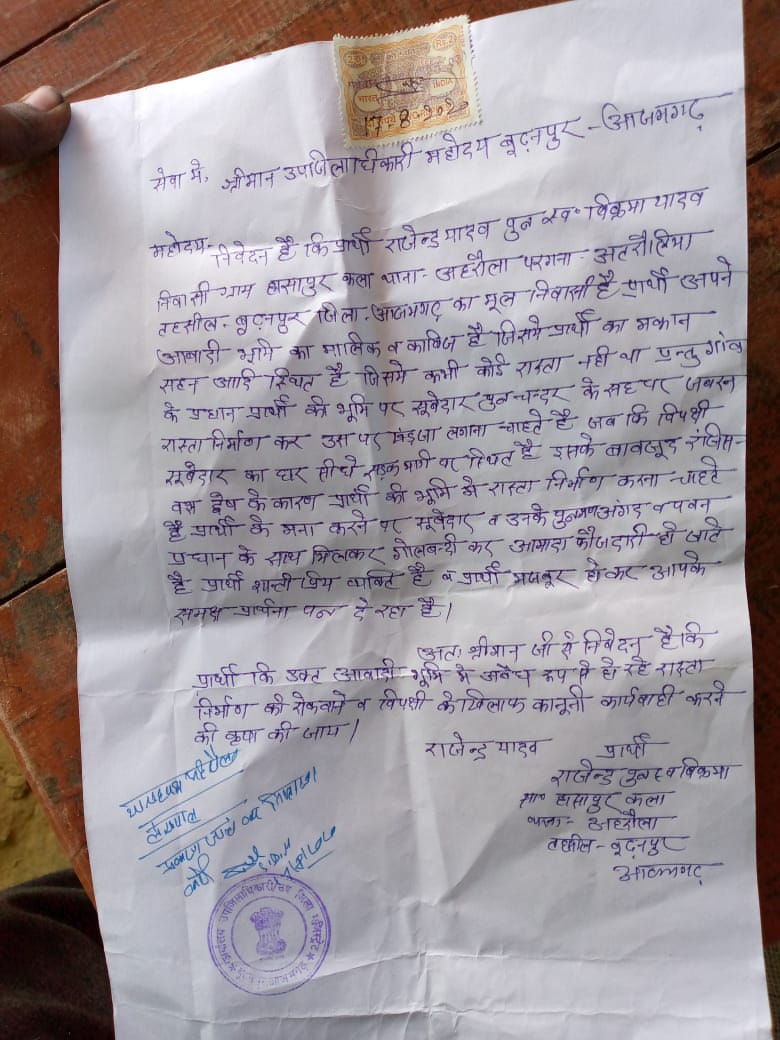 भारत INDIA
17-8-2020
सेवा मे, श्रीमान उपजिलाधिकारी महोदय बूढ़नपुर - आजमगढ़
महोदय,
निवेदन है कि प्रार्थी राजेन्द्र यादव पुत्र स्व० विक्रमा यादव
निवासी ग्राम हासापुर कला थाना- अहरौला परगना- अतरौलिया
तहसील- बूढ़नपुर जिला- आजमगढ़ का मूल निवासी है प्रार्थी अपने
आबादी भूमि का मालिक व काबिज है जिसमे प्रार्थी का मकान
सहन आदि स्थित है जिसमे कभी कोई रास्ता नही था परन्तु गांव
के प्रधान प्रार्थी की भूमि पर सूबेदार पुत्र चन्दर के सह पर जबरन
रास्ता निर्माण कर उस पर खड़ंजा लगाना चाहते है जब कि विपक्षी
सूबेदार का घर सीधे सड़क मार्ग पर स्थित है इसके बावजूद रंजिस-
वश द्वेष के कारण प्रार्थी की भूमि मे रास्ता निर्माण करना चाहते
है प्रार्थी के मना करने पर सूबेदार व उनके पुत्रगण अंगद व पवन
प्रधान के साथ मिलकर गोलबन्दी कर आमादा फौजदारी हो जाते
है प्रार्थी शान्ती प्रिय व्यक्ति है व प्रार्थी मजबूर होकर आपके
समक्ष प्रार्थना पत्र दे रहा है।
अतः श्रीमान जी से निवेदन है कि
प्रार्थी कि उक्त आबादी भूमि मे अवैध रूप से हो रहे रास्ता
निर्माण को रोकवाने व विपक्षी के खिलाफ कानूनी कार्यवाही करने
की कृपा की जाय।
राजेन्द्र यादव प्रार्थी
राजेन्द्र पुत्र स्व विक्रमा
सा० हासापुर कला
थाना- अहरौला
तहसील- बूढ़नपुर
आजमगढ़
कार्यालय उपजिलाधिकारी